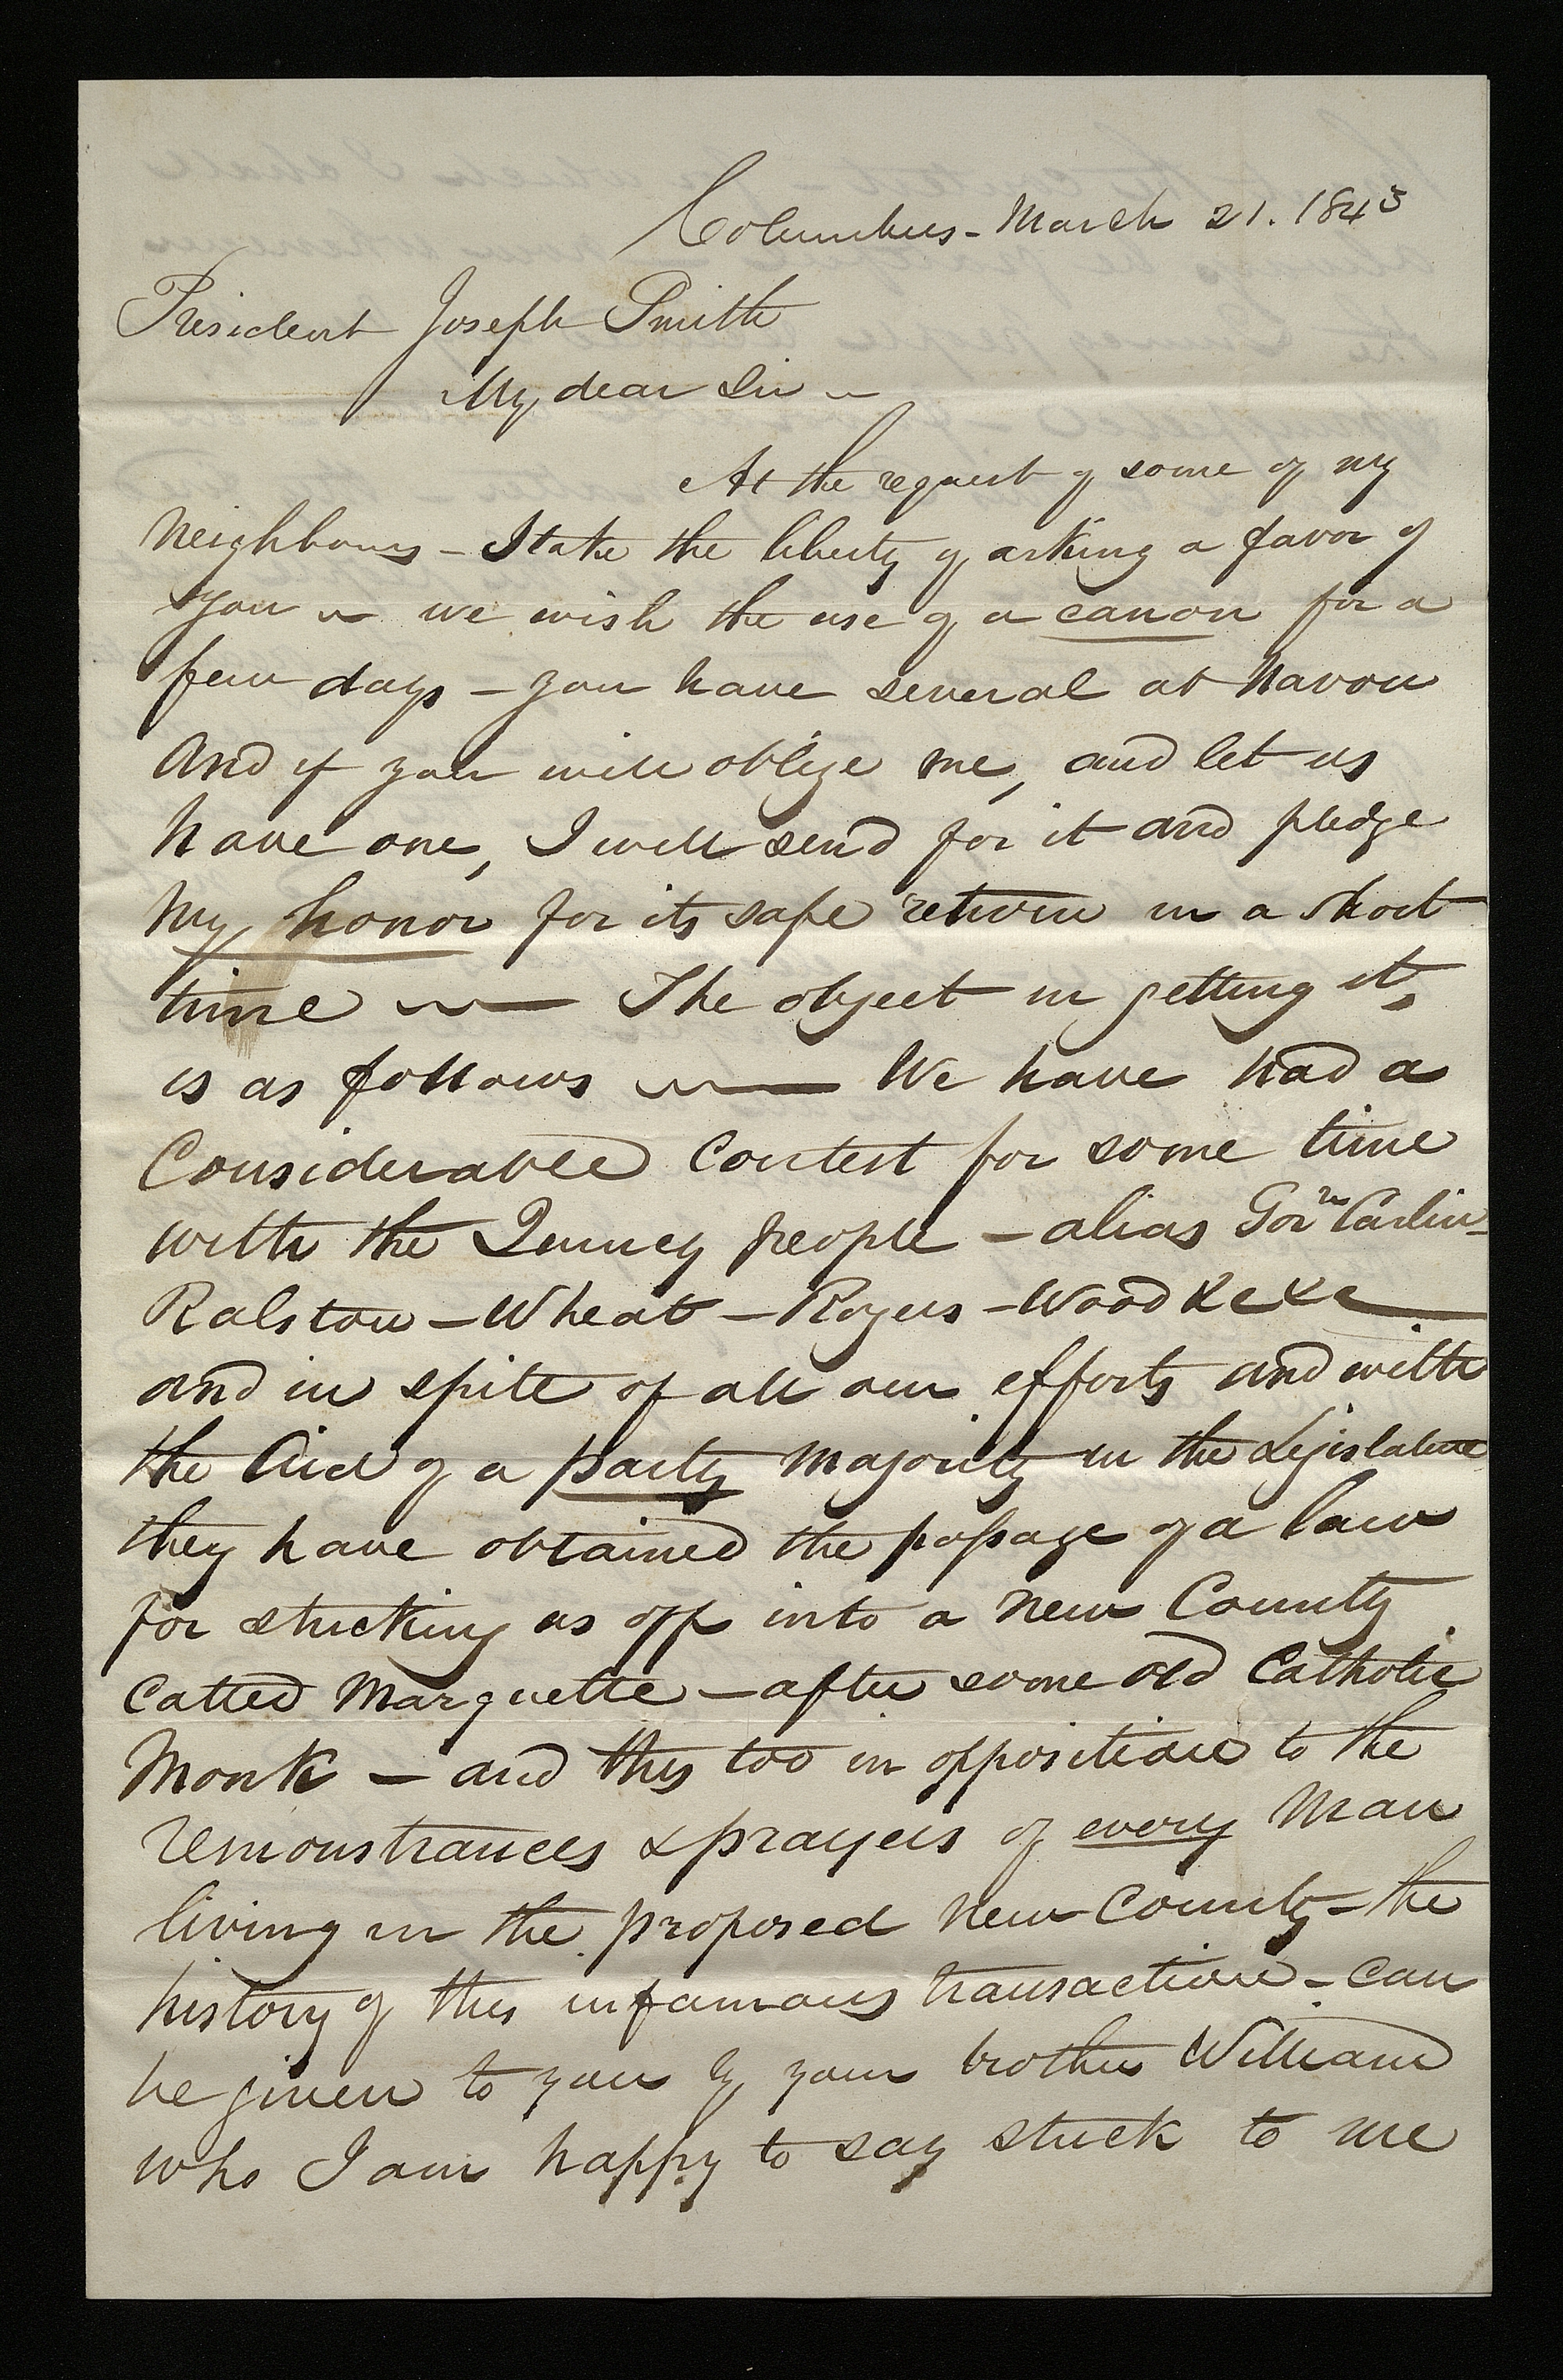 Columbus - March 21. 1843
President Joseph Smith
My dear Sir ~
At the request of some of my
Neighbours - I take the liberty of asking a favor of
you ~ we wish the use of a canon for a
few days - you have several at Navou
And if you will oblige me, and let us
have one, I will send for it and pledge
my honor for its safe return in a short
time ~ — The object in getting it,
is as follows ~ — We have had a
Considerable Contest for some time
with the Quincy people - alias Govr Carlin -
Ralston - Wheat - Rogers - Wood &c &c —
and in spite of all our efforts and with
the Aid of a party majority in the Legislature
they have obtained the passage of a law
for stricking us off into a new County
Called Marquette - after some old Catholic
Monk - and this too in opposition to the
remonstrances & prayers of every Man
living in the proposed New County - the
history of this infamous transaction - can
be given to you by your brother William
who I am happy to say stuck to me